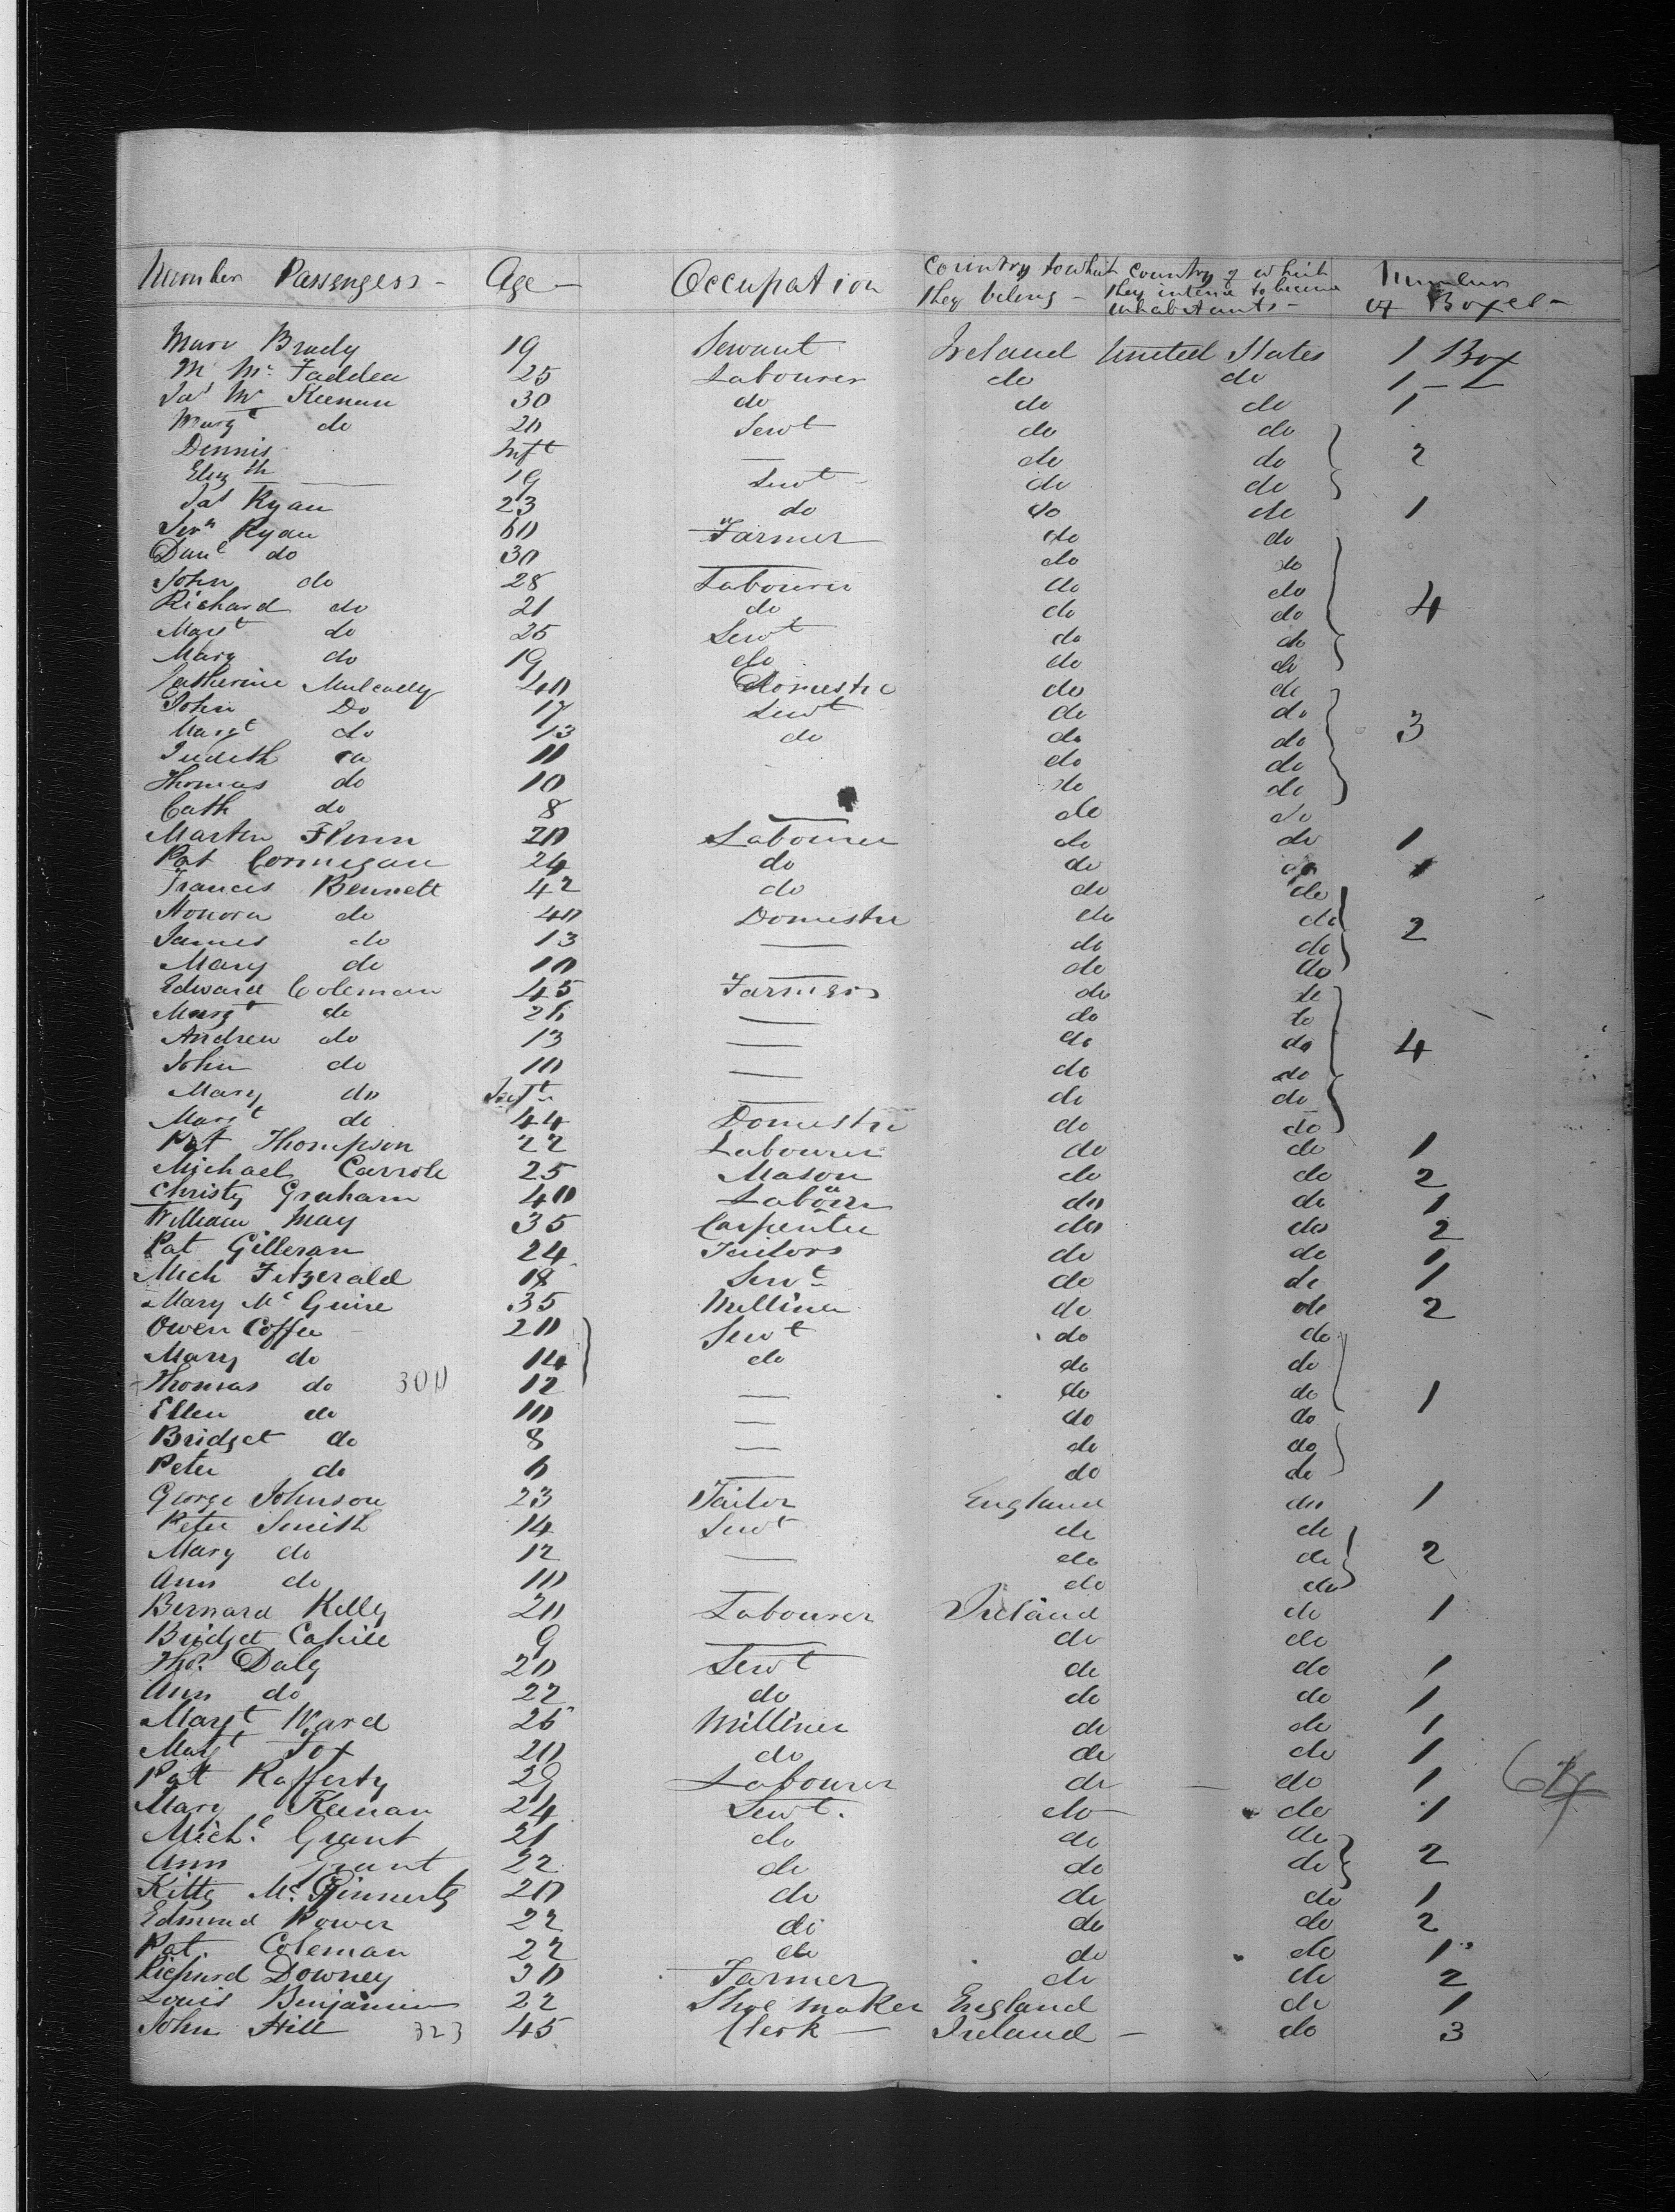 Number Passengers - Age - Occupation Country to which they belong - Country of which they intend to become inhabitants - Number of Boxes -
Mary Brady 19 Servant Ireland United States 1 Box
M Mc Fadden 25 Labourer do do 1 -
Jas Mc Keenan 30 do do do 1
Margt do 20 Servt do do
Dennis Inft — do do 2
Elizth — 19 Servt do do
Jas Ryan 23 do do do 1
Ryan 60 Farmer do do
Danl do 30 — do do
John do 28 Labourer do do
Richard do 21 do do do 4
Margt do 25 Servt do do
Mary do 19 do do do
Catherine Mulcally 40 Domestic do do
John Do 17 Servt do do
Margt do 13 do do do 3
Judith do 11 do do
Thomas do 10 do do
Cath do 8 — do do
Martin Flinn 20 Labourer do do 1
Pat Cormigan 24 do do do 1
Francis Bennett 42 do do do
Honora do 40 Domestic do do 2
James do 13 — do do
Mary do 10 — do do
Edward Coleman 45 Farmer do do
Margt do 26 — do do
Andrew do 13 — do do 4
John do 10 — do do
Mary do Inft — do do
Margt do 44 Domestic do do
Pat Thompson 22 Labourer do do 1
Michael Carrole 25 Mason do do 2
Christy Graham 40 Labour do do 1
William May 35 Carpenter do do 2
Pat Gilleran 24 Tailors do do 1
Mich Fitzerald 18 Servt do do 1
Mary Mc Guire 35 Milliner do do 2
Owen Coffee 20 Servt do do
Mary do 14 do do do
Thomas do 300 12 — do do 1
Ellen do 10 — do do
Bridget do 8 — do do
Peter do 6 — do do
George Johnson 23 Tailor England do 1
Peter Smith 14 Servt do do
Mary do 12 — do do 2
Ann do 10 do do
Bernard Kelly 20 Labourer Ireland do 1
Bridget Cahill 9 — do do
Thos. Daly 20 Servt do do 1
Ann do 22 do do do 1
Margt Ward 26 Milliner do do 1
Margt Fox 20 do do do 1
Pat Rafferty 29 Labourer do — do 1
Mary Keenan 24 Servt. do do 1
Michl Grant 21 do do do
Ann Grant 22 do do do 2
Kitty Mc Ginnerty 20 do do do 1
Edmund Power 22 do do do 2
Pat. Coleman 22 do do do 1
Richard Downey 30 Farmer do do 2
Louis Benjamin 22 Shoe maker England do 1
John Hill 323 45 Clerk — Ireland — do 3